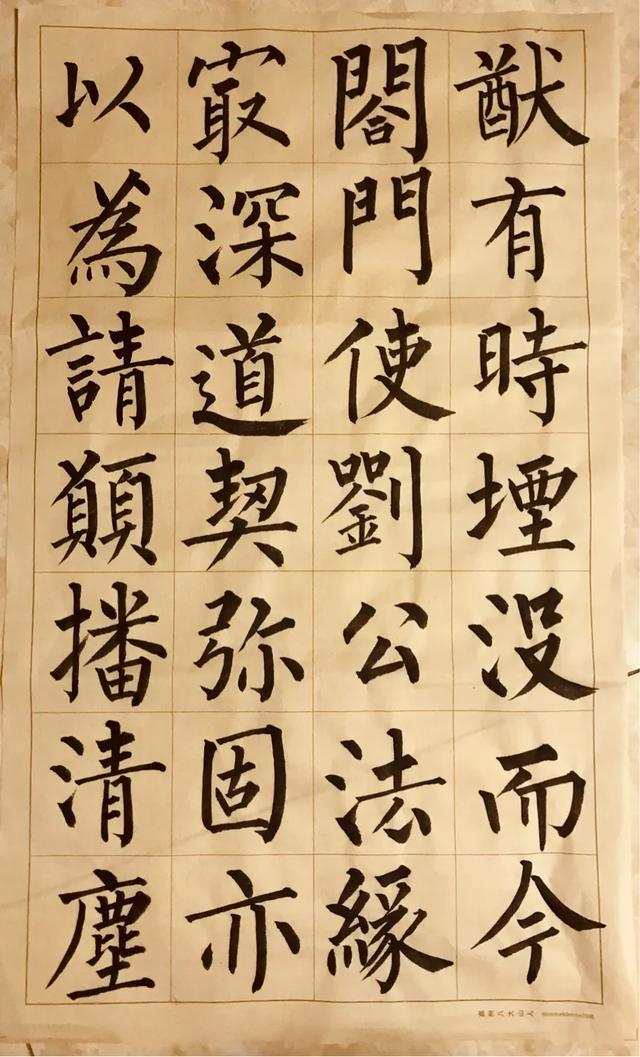 猷有時堙没而今
閤門使劉公法緣
冣深道契弥固亦
以為請願播清塵